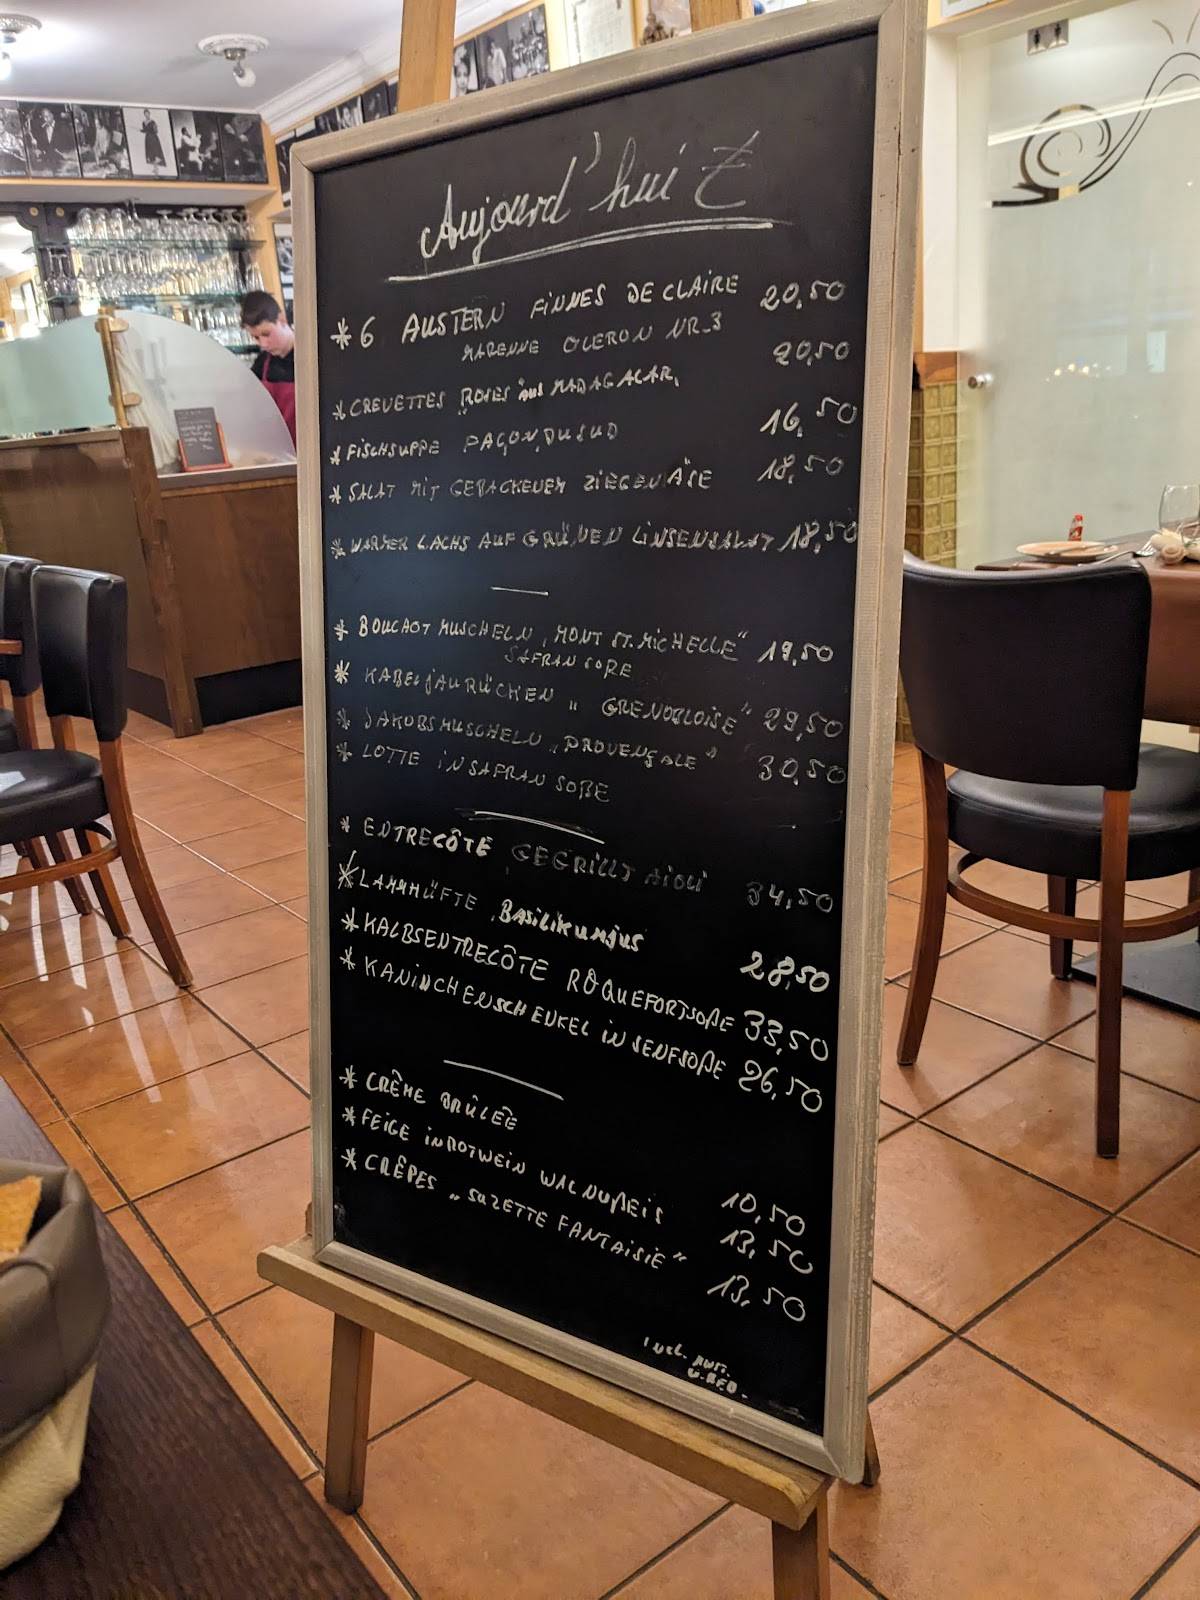 Aujourd'hui
* 6 AUSTERN FINNES DE CLAIRE 20,50
MARENNE OLERON NR_3
* CREVETTES "ROSES" aus MADAGACAR, 20,50
* FISCHSUPPE FAÇON DU SUD 16,50
* SALAT MIT GEBACKENEM ZIEGENKÄSE 18,50
* WARMER LACHS AUF GRÜNEN LINSENSALAT 18,50
* BOUCHOT MUSCHELN „MONT ST. MICHELLE" 19,50
SAFRAN SOßE
* KABELJAURÜCKEN „GRENOBLOISE" 29,50
* JAKOBSMUSCHELN „PROVENÇALE" 30,50
* LOTTE IN SAFRAN SOßE
* ENTRECÔTE GEGRILLT AIOLI 34,50
* LAMMHÜFTE, BASILIKUMJUS 28,50
* KALBSENTRECÔTE ROQUEFORTSOßE 33,50
* KANINCHENSCHENKEL IN SENFSOßE 26,50
* CRÈME BRÛLÉE 10,50
* FEIGE IN ROTWEIN WALNUßEIS 13,50
* CRÊPES „SUZETTE FANTAISIE" 13,50
INCL. MWST.
U. BED.